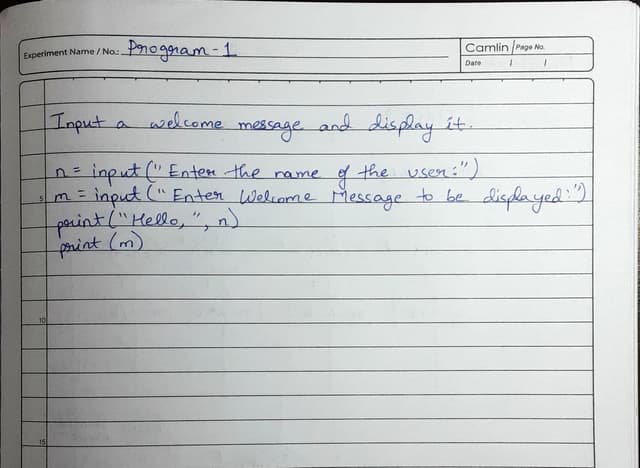 Experiment Name / No.: Program - 1
Camlin Page No.
Date / /
Input a welcome message and display it.
n = input (" Enter the name of the user:")
5 m = input (" Enter Welcome Message to be displayed:")
print ("Hello, ", n)
print (m)
10
15